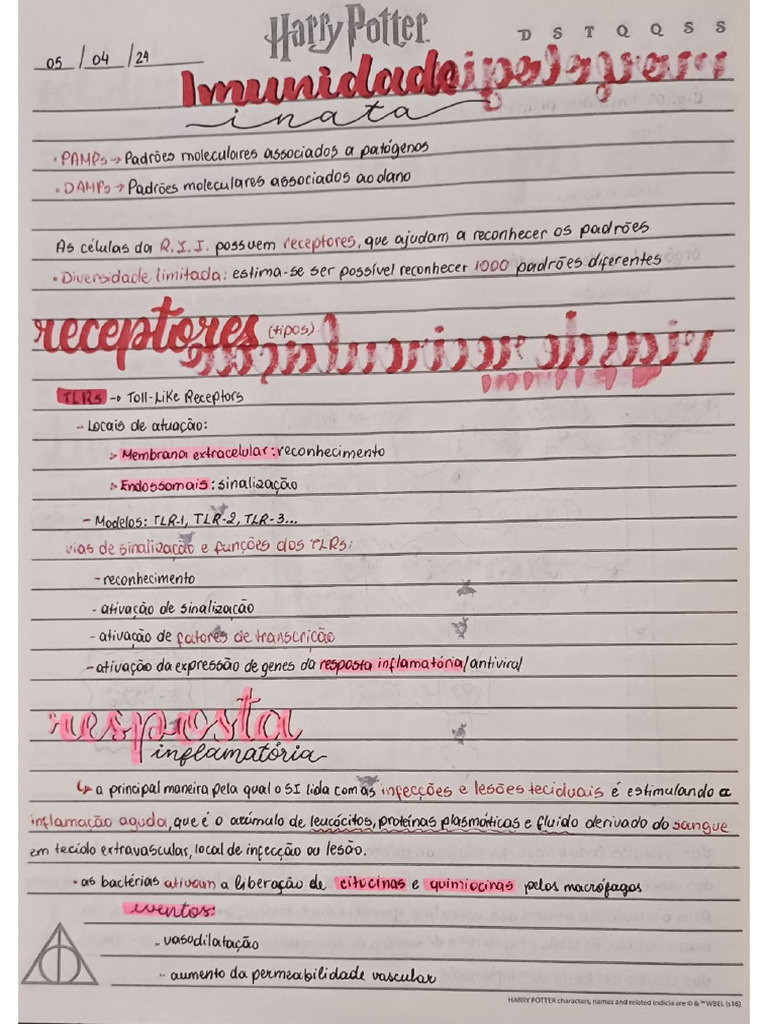 Harry Potter
D S T Q Q S S
05 / 04 / 24
Imunidade
inata
• PAMPs → Padrões moleculares associados a patógenos
• DAMPs → Padrões moleculares associados ao dano
As células da R.I.I. possuem receptores, que ajudam a reconhecer os padrões
• Diversidade limitada: estima-se ser possível reconhecer 1000 padrões diferentes
receptores (tipos)
TLRs → Toll-Like Receptors
- Locais de atuação:
> Membrana extracelular: reconhecimento
> Endossomais: sinalização
- Modelos: TLR-1, TLR-2, TLR-3...
vias de sinalização e funções dos TLRs:
- reconhecimento
- ativação de sinalização
- ativação de fatores de transcrição
- ativação da expressão de genes da resposta inflamatória/antiviral
resposta
inflamatória
↳ a principal maneira pela qual o SI lida com as infecções e lesões teciduais é estimulando a
inflamação aguda, que é o acúmulo de leucócitos, proteínas plasmáticas e fluido derivado do sangue
em tecido extravascular, local de infecção ou lesão.
• as bactérias ativam a liberação de citocinas e quimiocinas pelos macrófagos
eventos:
- vasodilatação
- aumento da permeabilidade vascular
HARRY POTTER characters, names and related indicia are © & ™ WBEI. (s16)